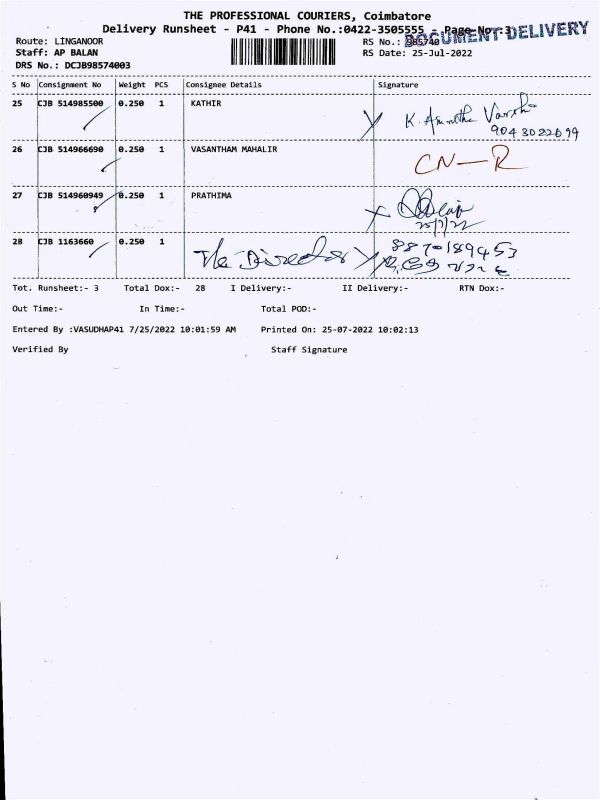 THE PROFESSIONAL COURIERS, Coimbatore
Delivery Runsheet - P41 - Phone No.:0422-3505555 - Page No.:3
DOCUMENT DELIVERY
Route: LINGANOOR RS No.: 985740
Staff: AP BALAN RS Date: 25-Jul-2022
DRS No.: DCJB98574003
S No Consignment No Weight PCS Consignee Details Signature
25 CJB 514985500 0.250 1 KATHIR
K.
9043022699
26 CJB 514966690 0.250 1 VASANTHAM MAHALIR
CN-R
27 CJB 514960949 0.250 1 PRATHIMA
25/7/22
28 CJB 1163660 0.250 1 The Director
8870189453
Tot. Runsheet:- 3 Total Dox:- 28 I Delivery:- II Delivery:- RTN Dox:-
Out Time:- In Time:- Total POD:-
Entered By :VASUDHAP41 7/25/2022 10:01:59 AM Printed On: 25-07-2022 10:02:13
Verified By Staff Signature